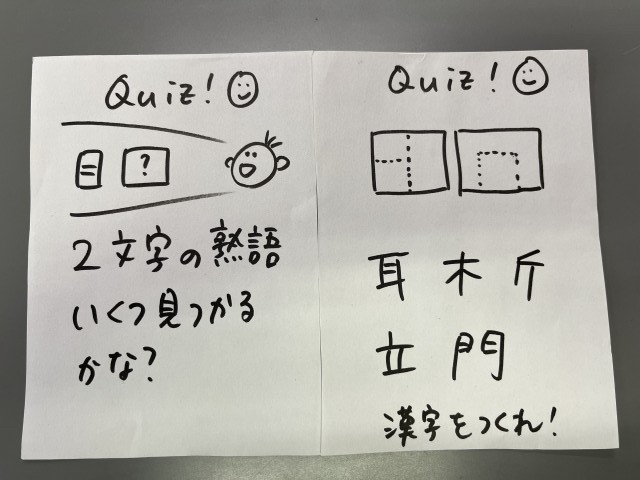 Quiz!
?
2文字の熟語
いくつ見つかる
かな?
Quiz!
耳 木 斤
立 門
漢字をつくれ!